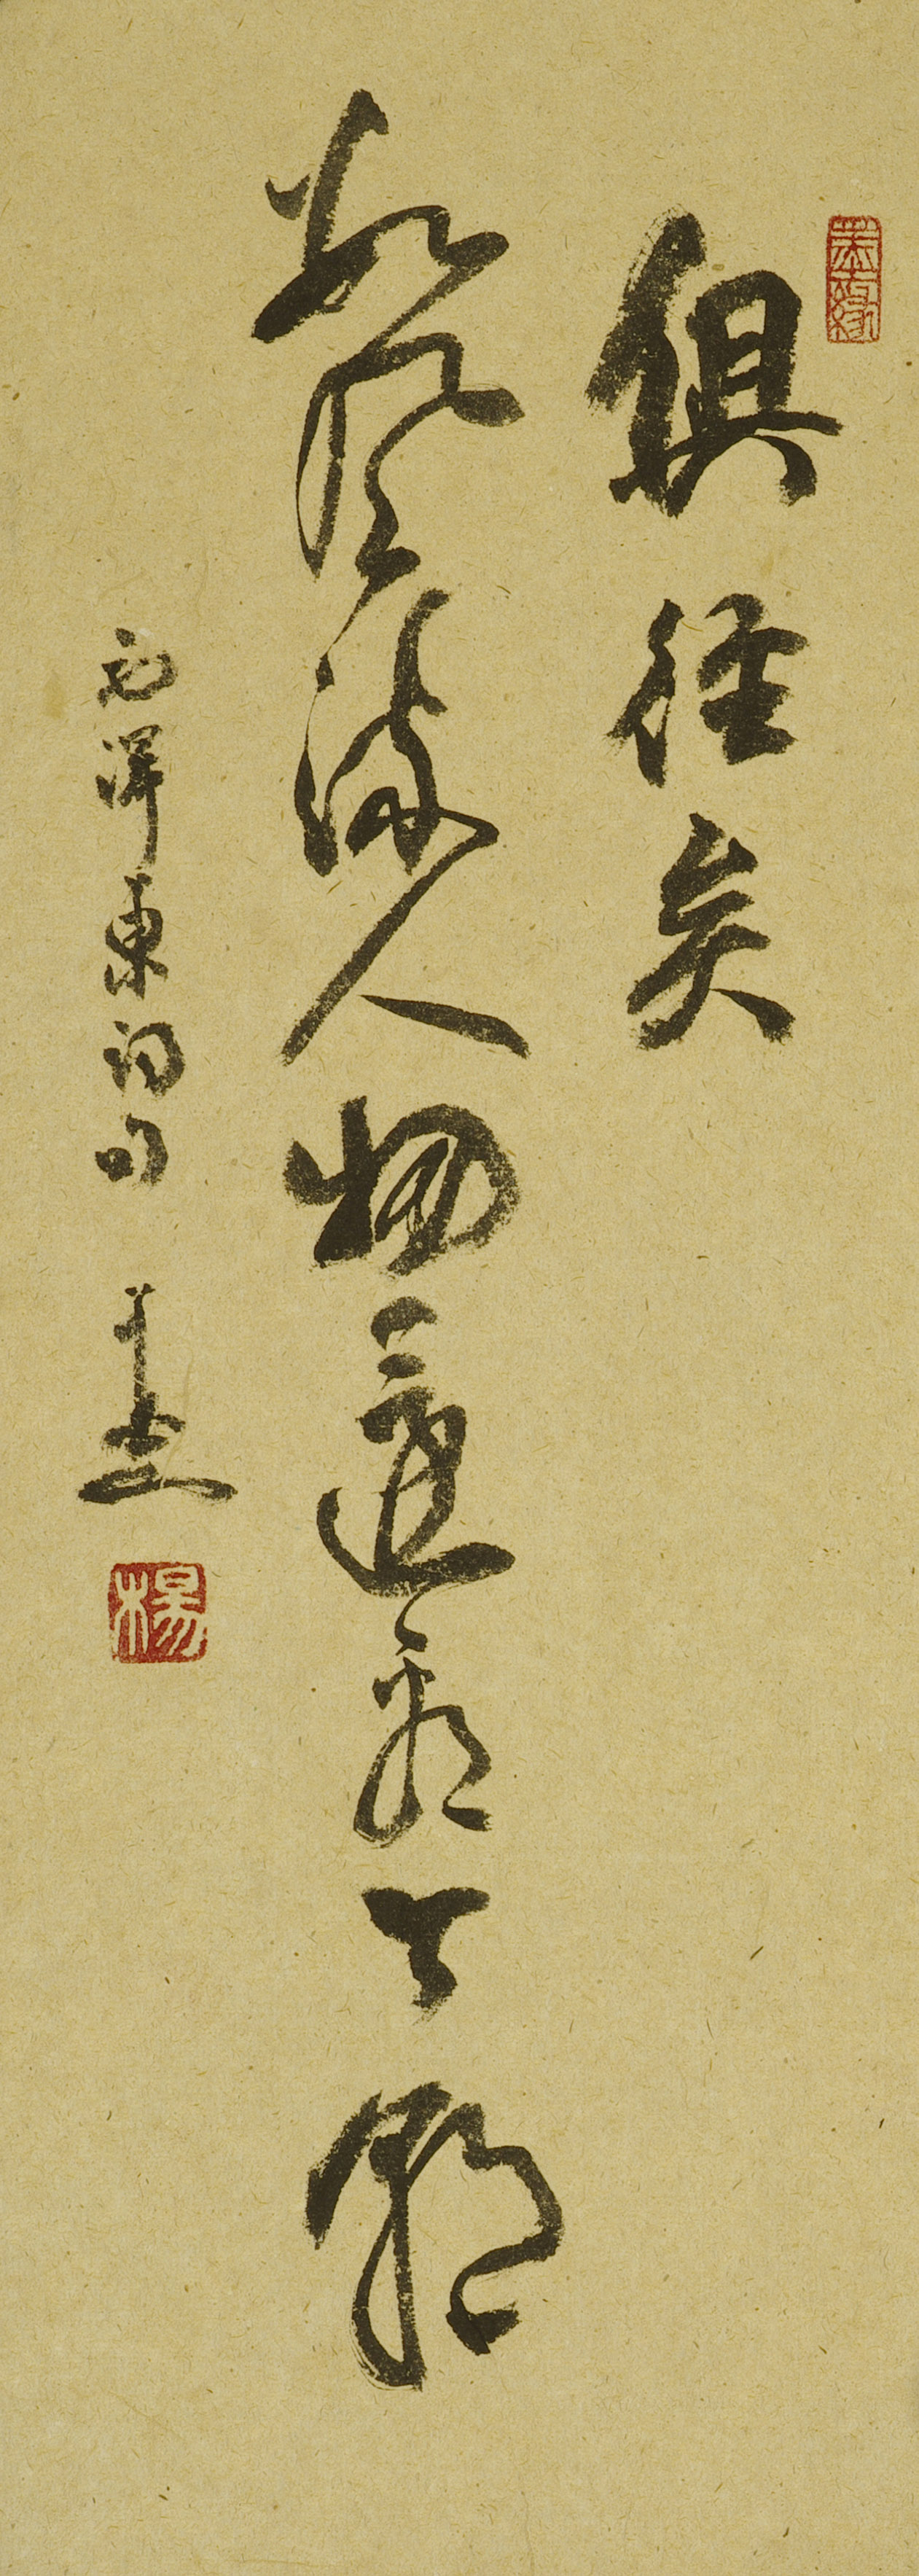 俱往矣
數風流人物還看今朝
毛澤東詞句
楊